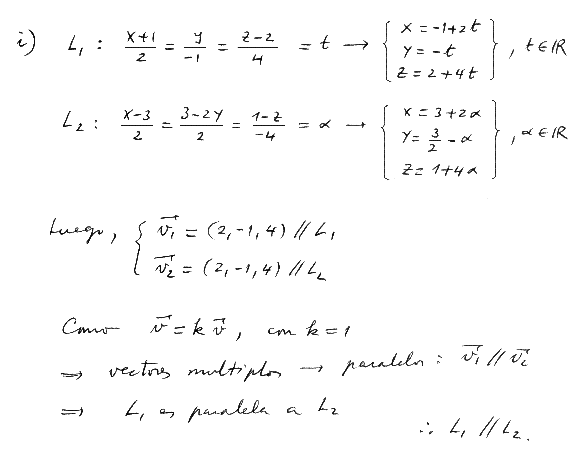 i) L₁ : (x+1)/2 = y/-1 = (z-2)/4 = t → { x = -1+2t
y = -t
z = 2+4t } , t ∈ ℝ
L₂ : (x-3)/2 = (3-2y)/2 = (1-z)/-4 = α → { x = 3+2α
y = 3/2 - α
z = 1+4α } , α ∈ ℝ
Luego, { v₁⃗ = (2,-1,4) // L₁
v₂⃗ = (2,-1,4) // L₂
Como v⃗ = k v⃗ , con k = 1
⇒ vectores multiplos → paralelos : v₁⃗ // v₂⃗
⇒ L₁ es paralela a L₂
∴ L₁ // L₂.